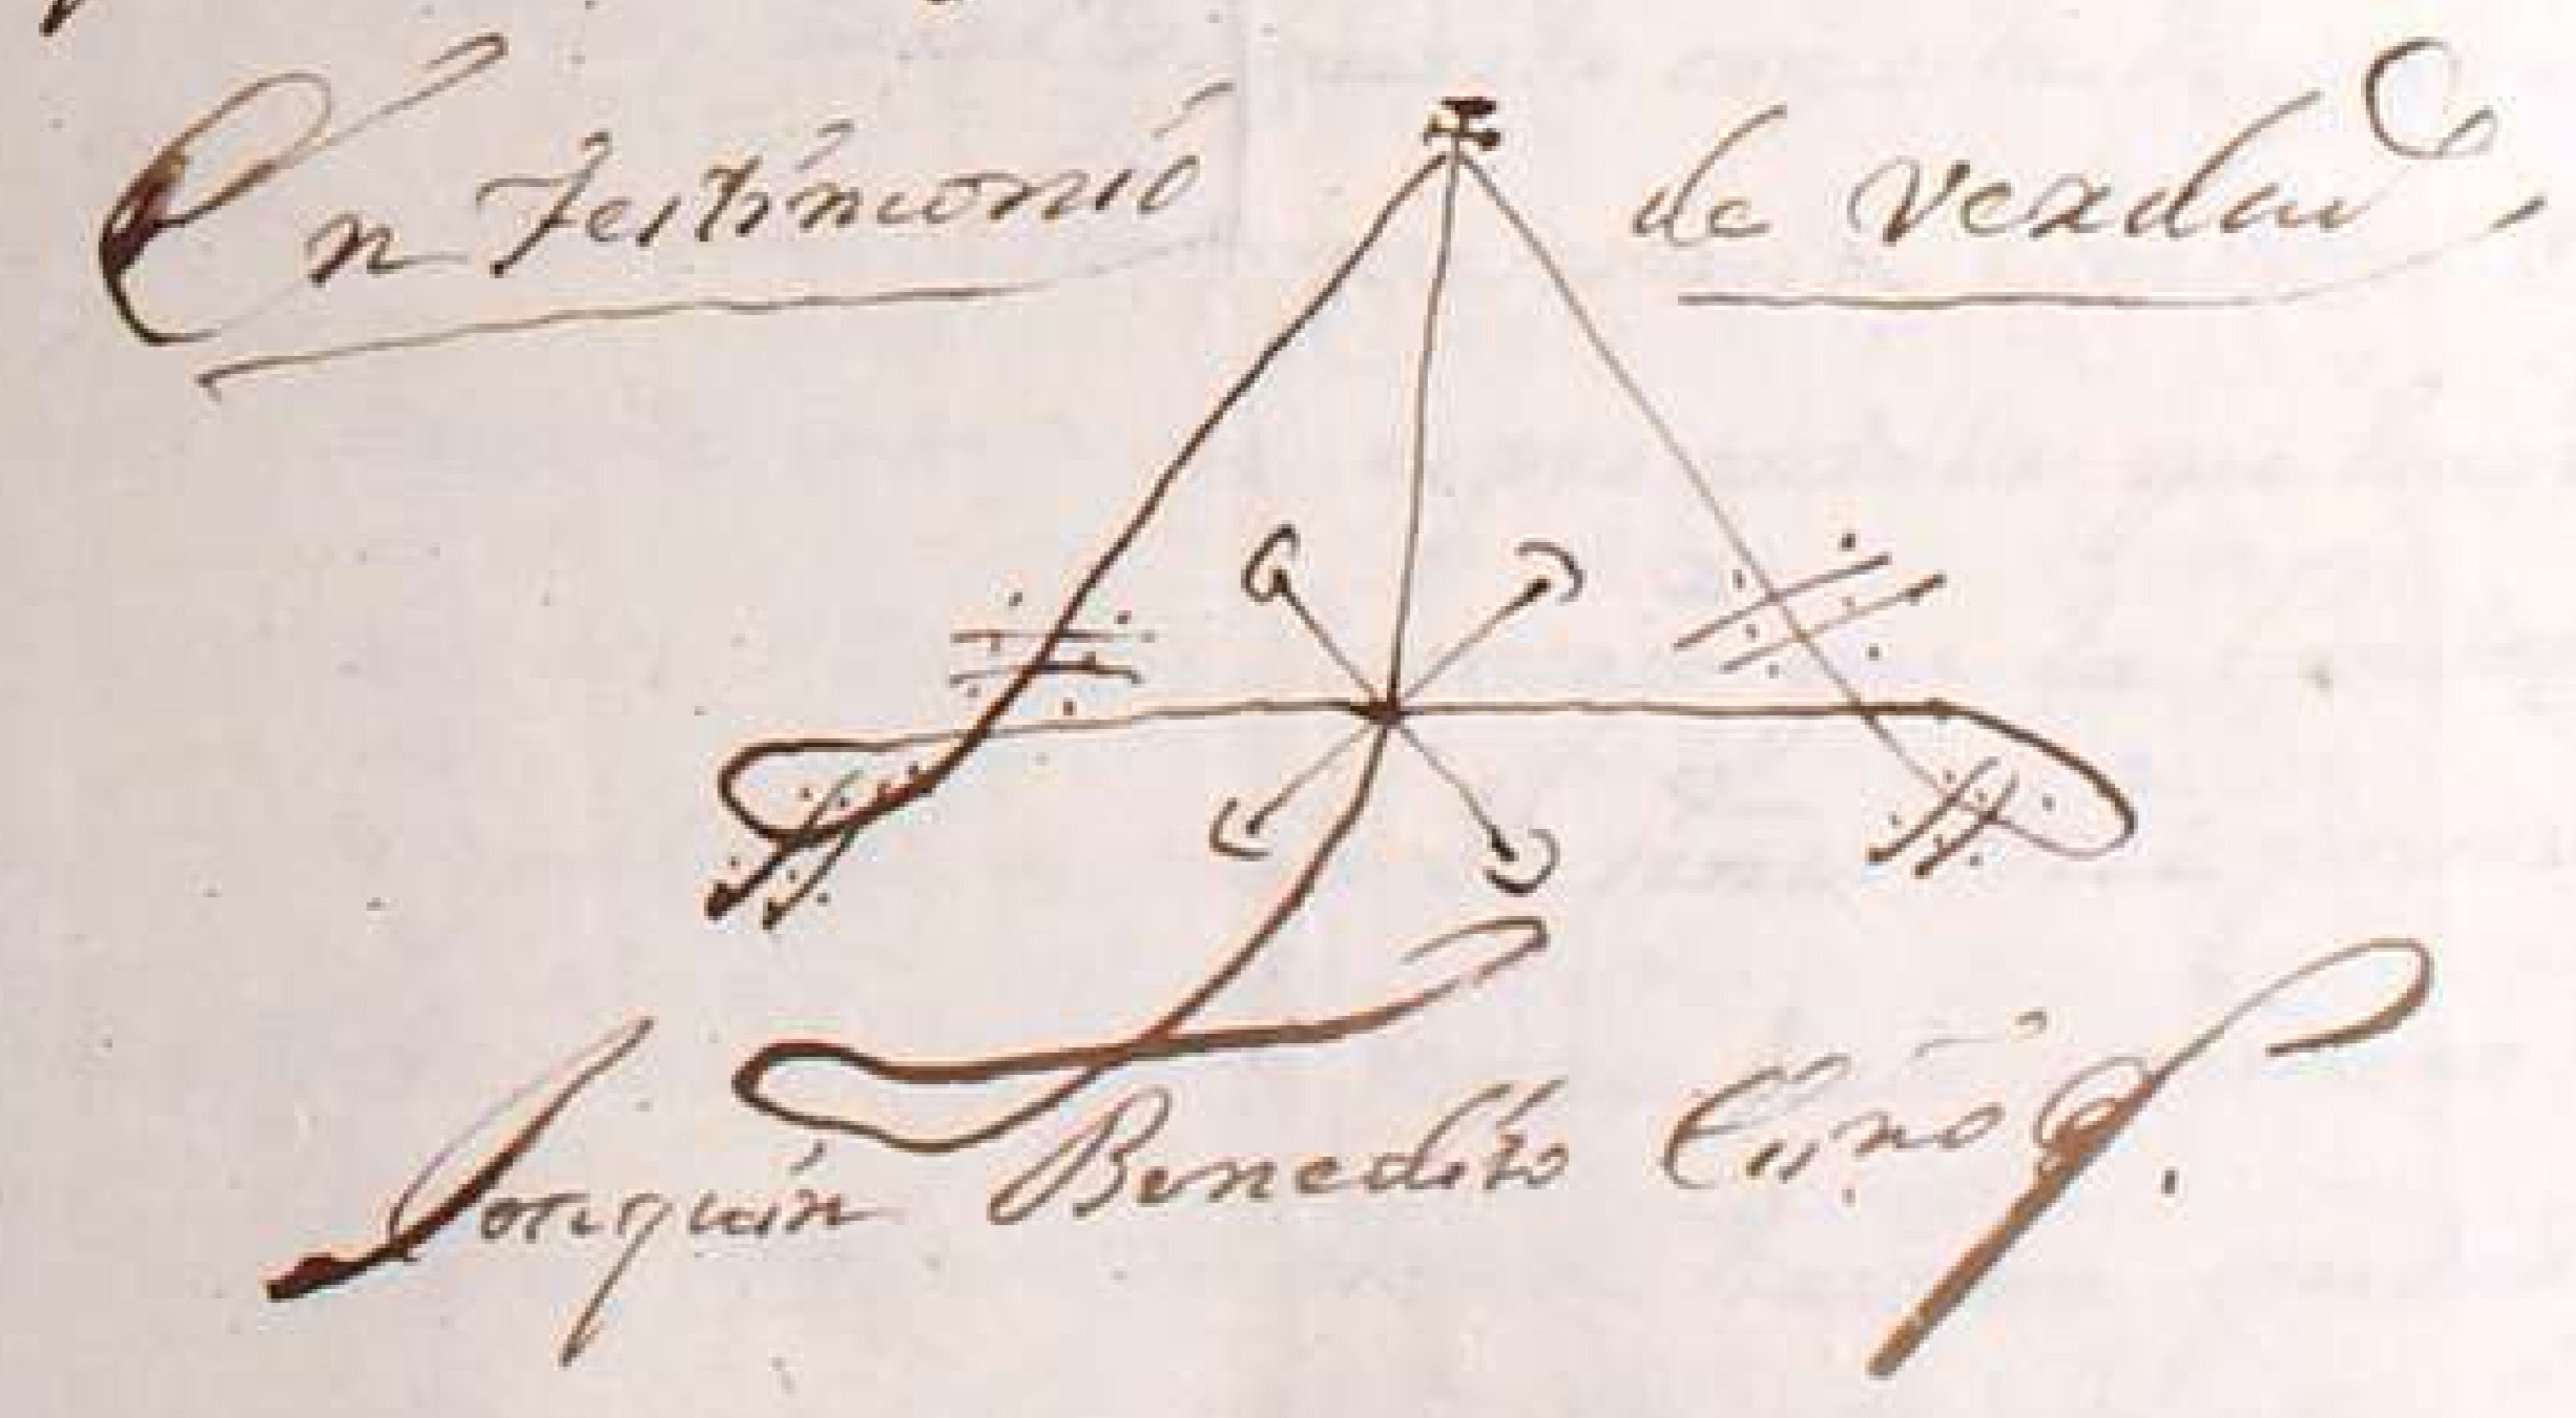 En Testimonio de Verdad
Joaquín Benedito